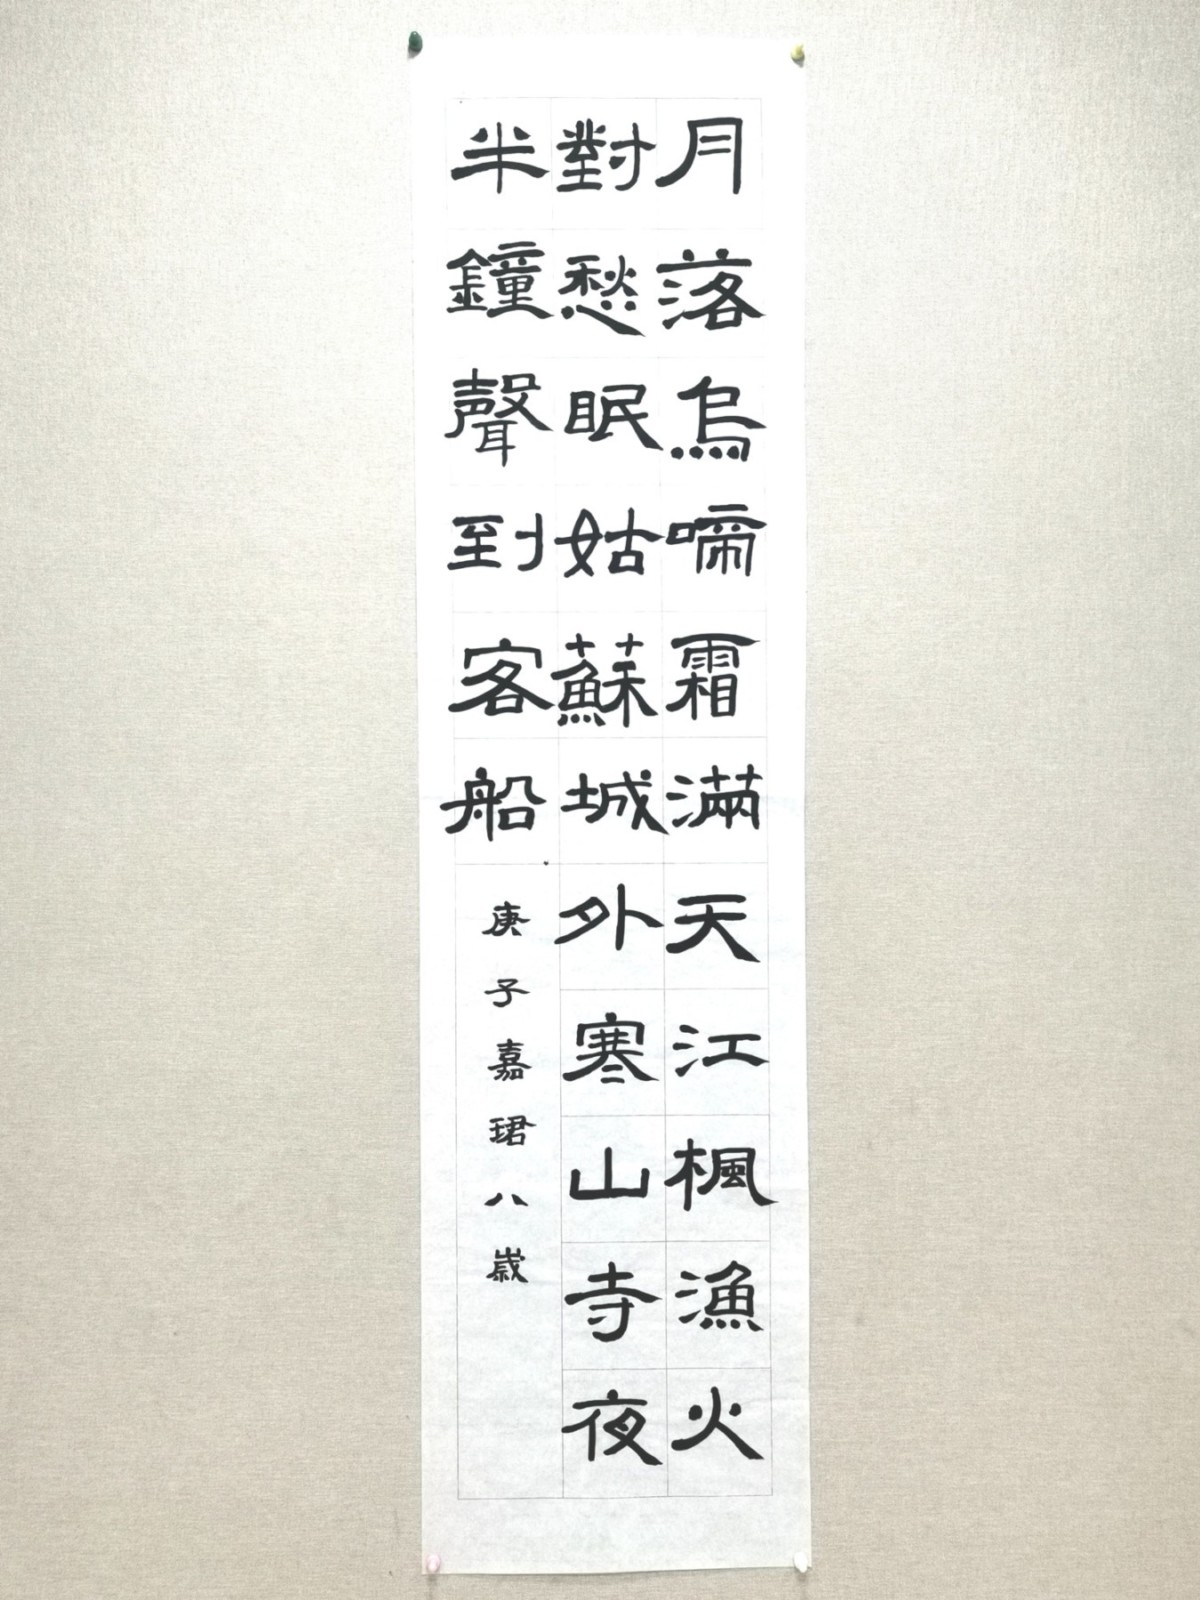 月落烏啼霜滿天江楓漁火
對愁眠姑蘇城外寒山寺夜
半鐘聲到客船
庚子嘉珺八歲